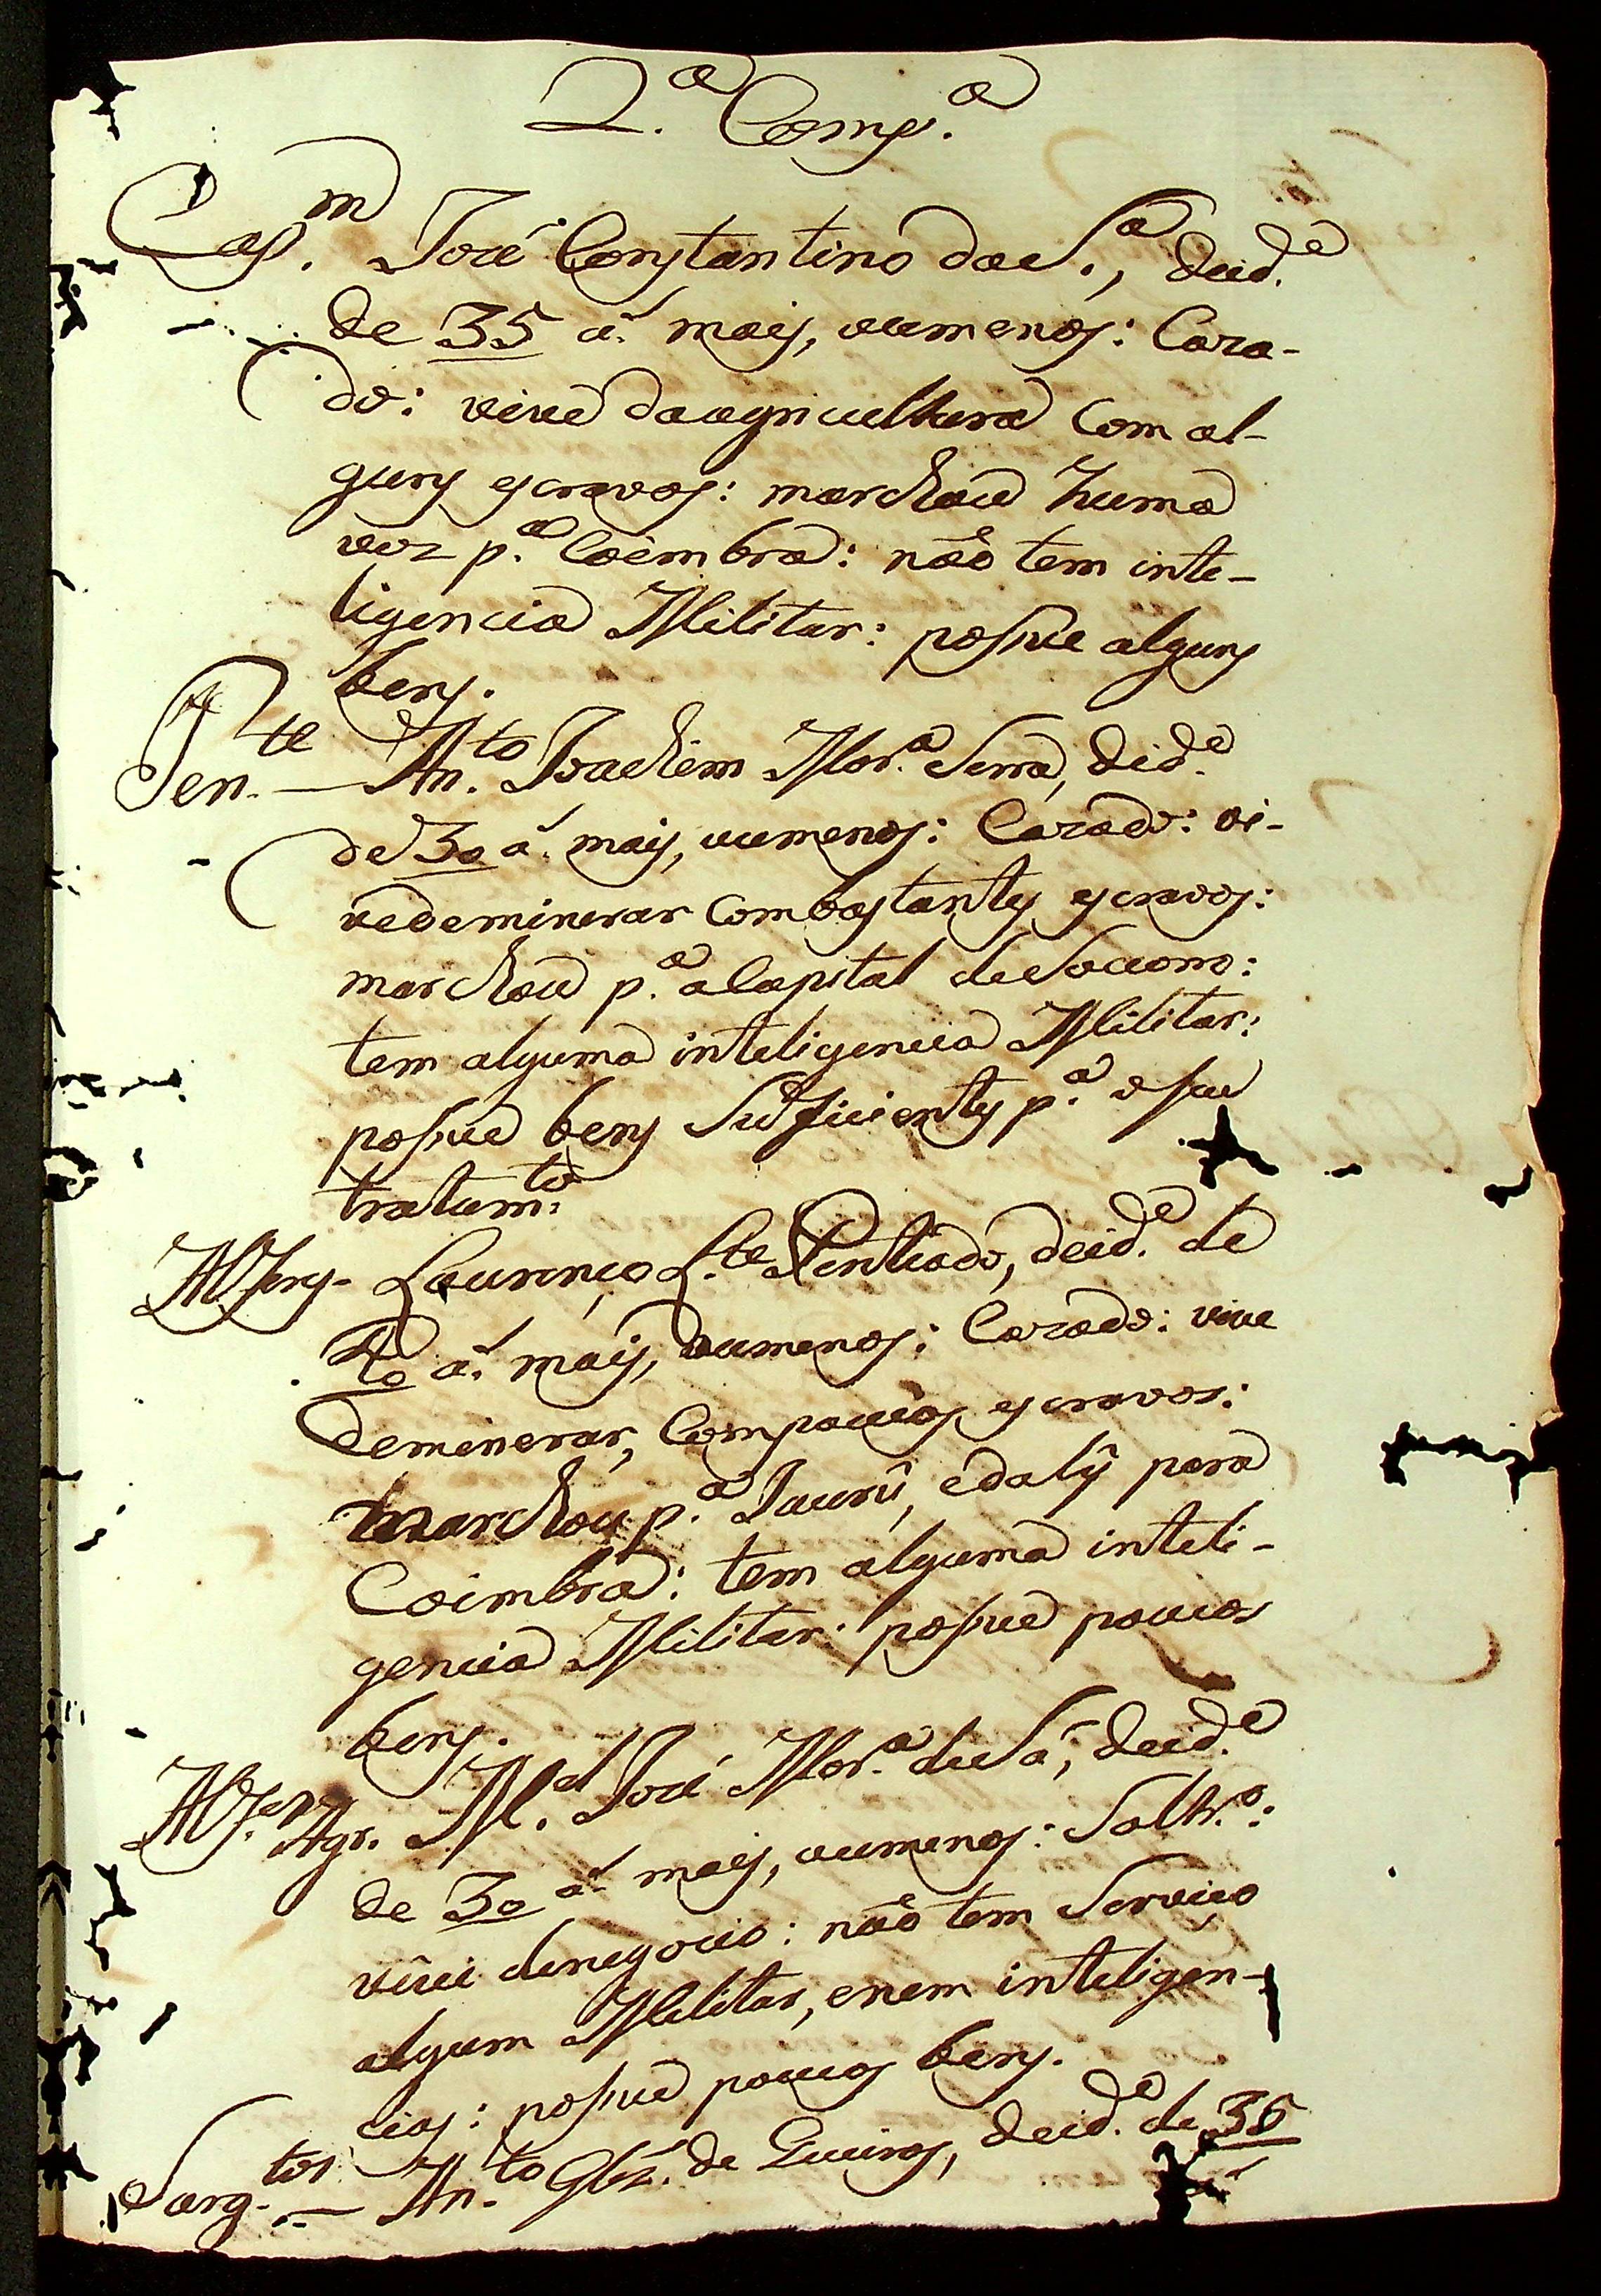 2.ª Comp.ª
Cap.m José Constantino da S.ª, deid.e
de 35 a. mais, oumenos: Caza-
do: vive daagricultura Com al-
guns escravos: marchou huma
vez p.ª Coimbra: não tem inte-
ligencia Militar: possue alguns
bens.
Ten.te — An.to Joachim Mor.ª Serra, deid.e
de 30 a. mais, oumenos: Cazado: vi-
vedeminerar Combastantes escravos:
marchou p.ª aCapital deSocorro:
tem alguma inteligencia Militar:
possue bens Sufficientes p.ª oseu
tratam.to
Alferes- Lourenço L.te Penteado, deid.e de
40 a. mais, oumenos: Cazado: vive
deminerar, Compoucos escravos:
marchou p.ª Jaurú, edaly para
Coimbra: tem alguma inteli-
gencia Militar: possue poucos
bens.
Alf.es Agr. M.el José Mor.ª deSá, deid.e
de 30 a. mais, oumenos: Solt.ro:
vive denegocio: não tem Serviço
algum Militar, enem inteligen-
cias: possue poucos bens.
Sarg.tos — An.to Glz. de Queiros, deid.e de 35